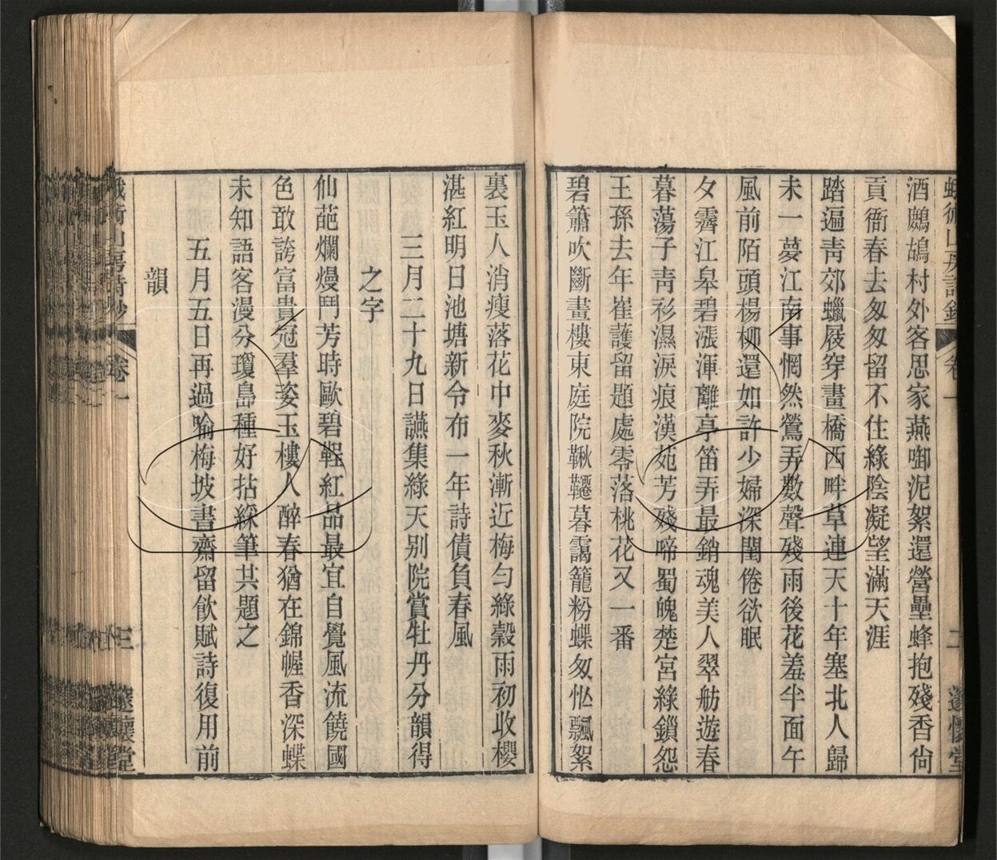 酒鷓鴣村外客思家燕啣泥絮還營壘蜂抱殘香尙
貢衙春去匆匆留不住綠陰凝望滿天涯
踏遍靑郊蠟屐穿畫橋西畔草連天十年塞北人歸
未一夢江南事惘然鶯弄數聲殘雨後花羞半面午
風前陌頭楊柳還如許少婦深閨倦欲眠
夕霽江皋碧漲渾離亭笛弄最銷魂美人翠舫遊春
暮蕩子靑衫濕淚痕漢苑芳殘啼蜀魄楚宮綠鎖怨
王孫去年崔護留題處零落桃花又一番
碧簫吹斷畫樓東庭院鞦韆暮靄籠粉蝶匆忙飄絮
二 邃懷堂
裏玉人消瘦落花中麥秋漸近梅勻綠穀雨初收櫻
湛紅明日池塘新令布一年詩債負春風
三月二十九日讌集綠天別院賞牡丹分韻得
之字
仙葩爛熳鬥芳時歐碧鞓紅品最宜自覺風流饒國
色敢誇富貴冠羣姿玉樓人醉春猶在錦幄香深蝶
未知語客漫分瓊島種好拈綵筆其題之
五月五日再過喻梅坡書齋留飲賦詩復用前
韻
卷一
三 邃懷堂